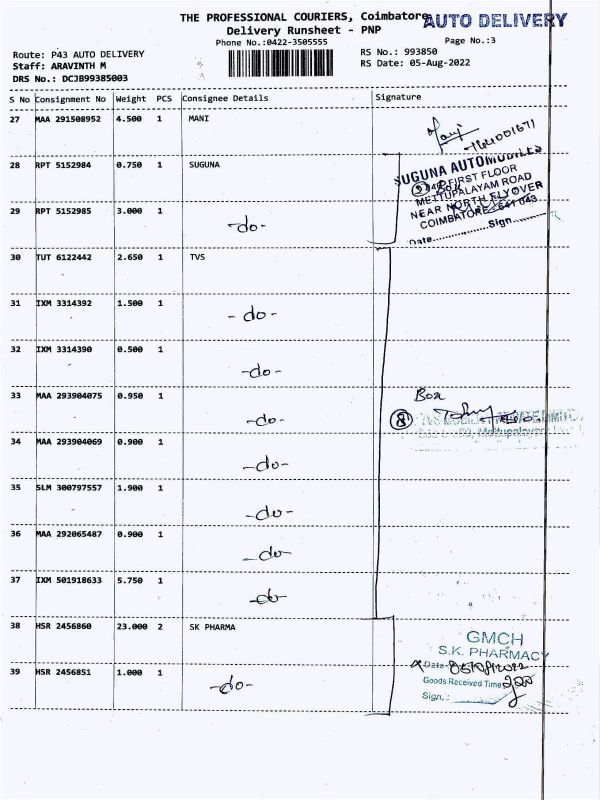 THE PROFESSIONAL COURIERS, Coimbatore
AUTO DELIVERY
Delivery Runsheet - PNP
Phone No.:0422-3505555
Page No.:3
Route: P43 AUTO DELIVERY
RS No.: 993850
Staff: ARAVINTH M
RS Date: 05-Aug-2022
DRS No.: DCJB99385003
S No Consignment No Weight PCS Consignee Details Signature
27 MAA 291508952 4.500 1 MANI
28 RPT 5152984 0.750 1 SUGUNA
SUGUNA AUTOMOBILES
FIRST FLOOR
METTUPALAYAM ROAD
NEAR NORTH FLYOVER
COIMBATORE - 641 043
Date.............Sign............
29 RPT 5152985 3.000 1 -do-
30 TUT 6122442 2.650 1 TVS
31 IXM 3314392 1.500 1 -do-
32 IXM 3314390 0.500 1 -do-
33 MAA 293904075 0.950 1 -do-
Box
8
34 MAA 293904069 0.900 1 -do-
35 SLM 300797557 1.900 1 -do-
36 MAA 292065487 0.900 1 -do-
37 IXM 501918633 5.750 1 -do-
38 HSR 2456860 23.000 2 SK PHARMA
GMCH
S.K. PHARMACY
Date 05/08/2022
Goods Received Time
Sign. :
39 HSR 2456851 1.000 1 -do-